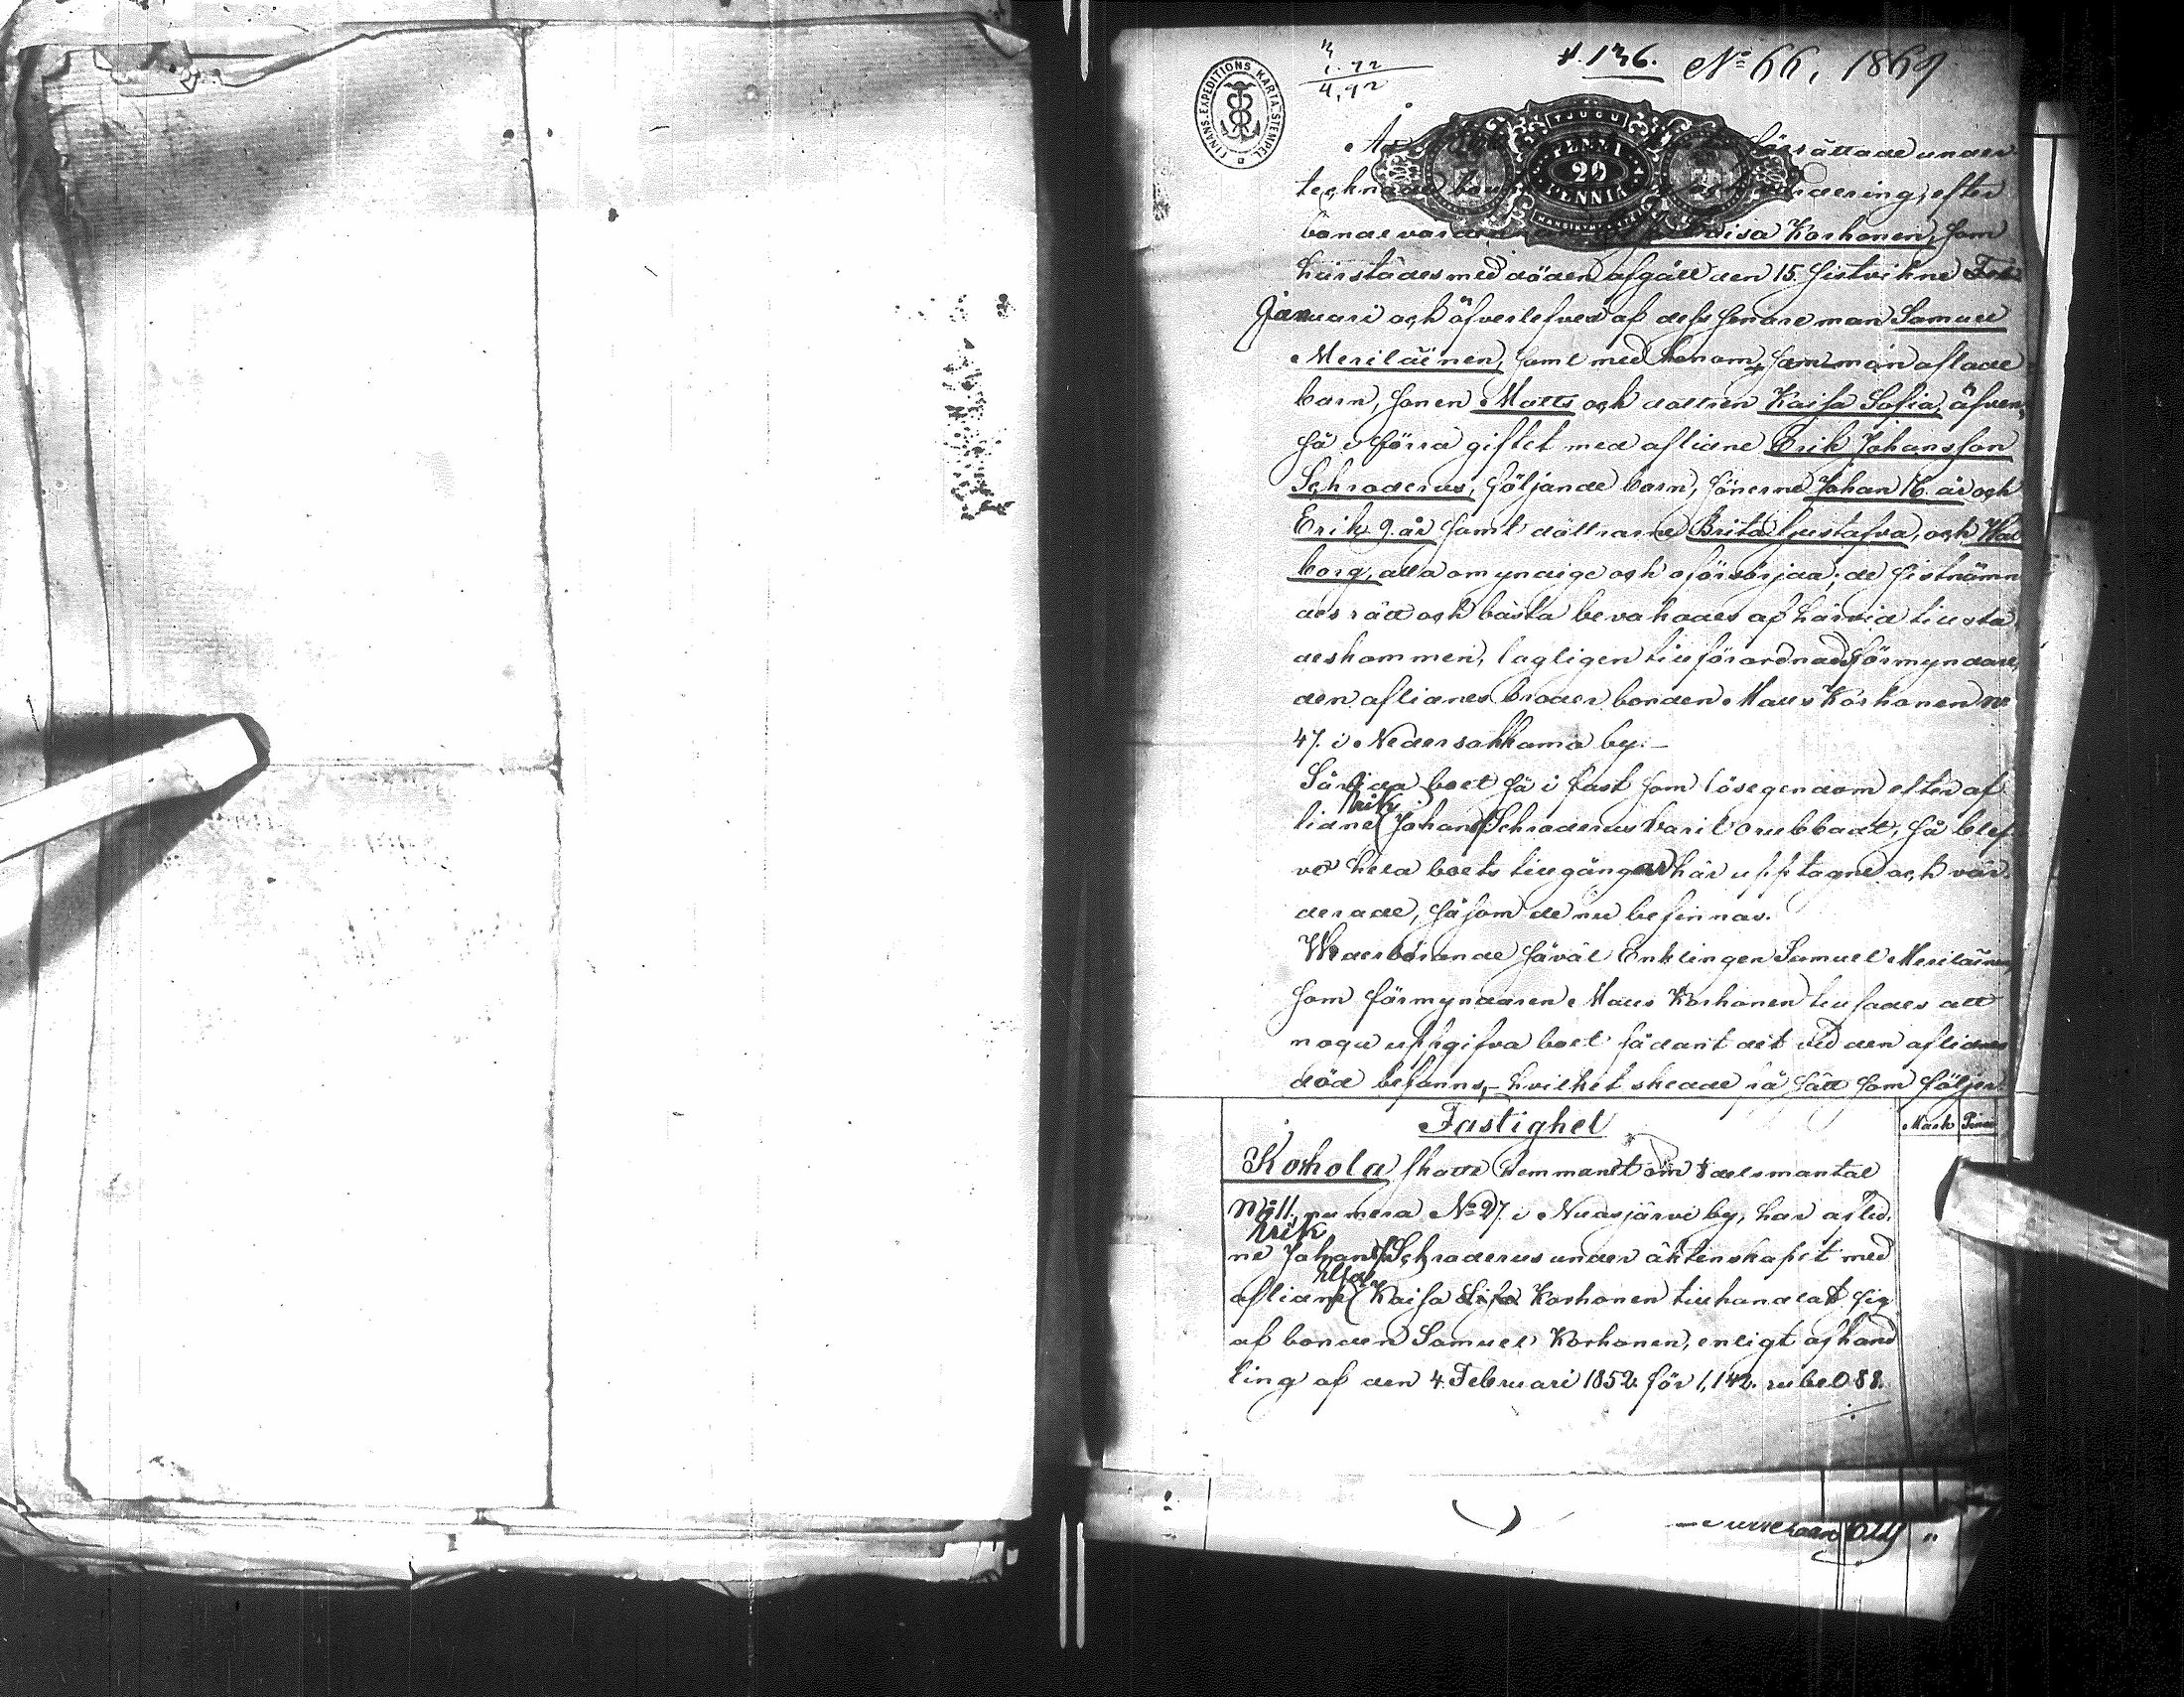 № 66, 1869
FINANS-EXPEDITIONS KARTA-STEMPEL
TJUGU
20
förrättade under
tecknade
dering, efter
Kaisa Korhonen, som
härstädes med döden afgått den 15. sistvikne
Januari och öfverlefves af dess senare man Samuel
Meriläinen, samt med honom sammanaflade
barn, sonen Matts och dottren Kaisa Sofia, äfven
så i förra giftet med aflidne Erik Johansson
Schroderus, följande barn, sönerne Johan 16. år och
Erik 9. år samt döttrarne Brita Gustafva, och Wal
borg, alla omyndige och oförsörjda; de sistnämn
des rätt och bästa bevakades af härvid tillsta
deskommen, lagligen tillförordnad förmyndare,
den aflidnes broder bonden Matts Korhonen №
47. i Nedersokkamo by.
boet så i fast som lösegendom efter af
Erik
lidne Johans Schroderus varit orubbadt, så blef
vo hela boets tillgångar här upptagne och vär
derade, såsom de nu befinnas.
Wederbörande såväl Enklingen Samuel Meriläinen,
som förmyndaren Matts Korhonen tillsades att
noga uppgifva boet sådant det vid den aflidnes
död befanns,- hvilket skedde på sätt som följer
Fastighet
Mark Penni
Korhola skatte hemmanet om
delsmantal
№ 11. numera № 27. i Nuasjärvi by, har aflid.
Erik
ne Johans Schroderus under äktenskapet med
aflidne Kaisa Korhonen tillhandlat sig
af bonden Samuel Korhonen, enligt afhand
ling af den 4. Februari 1852. för 1,142. rub. 088.